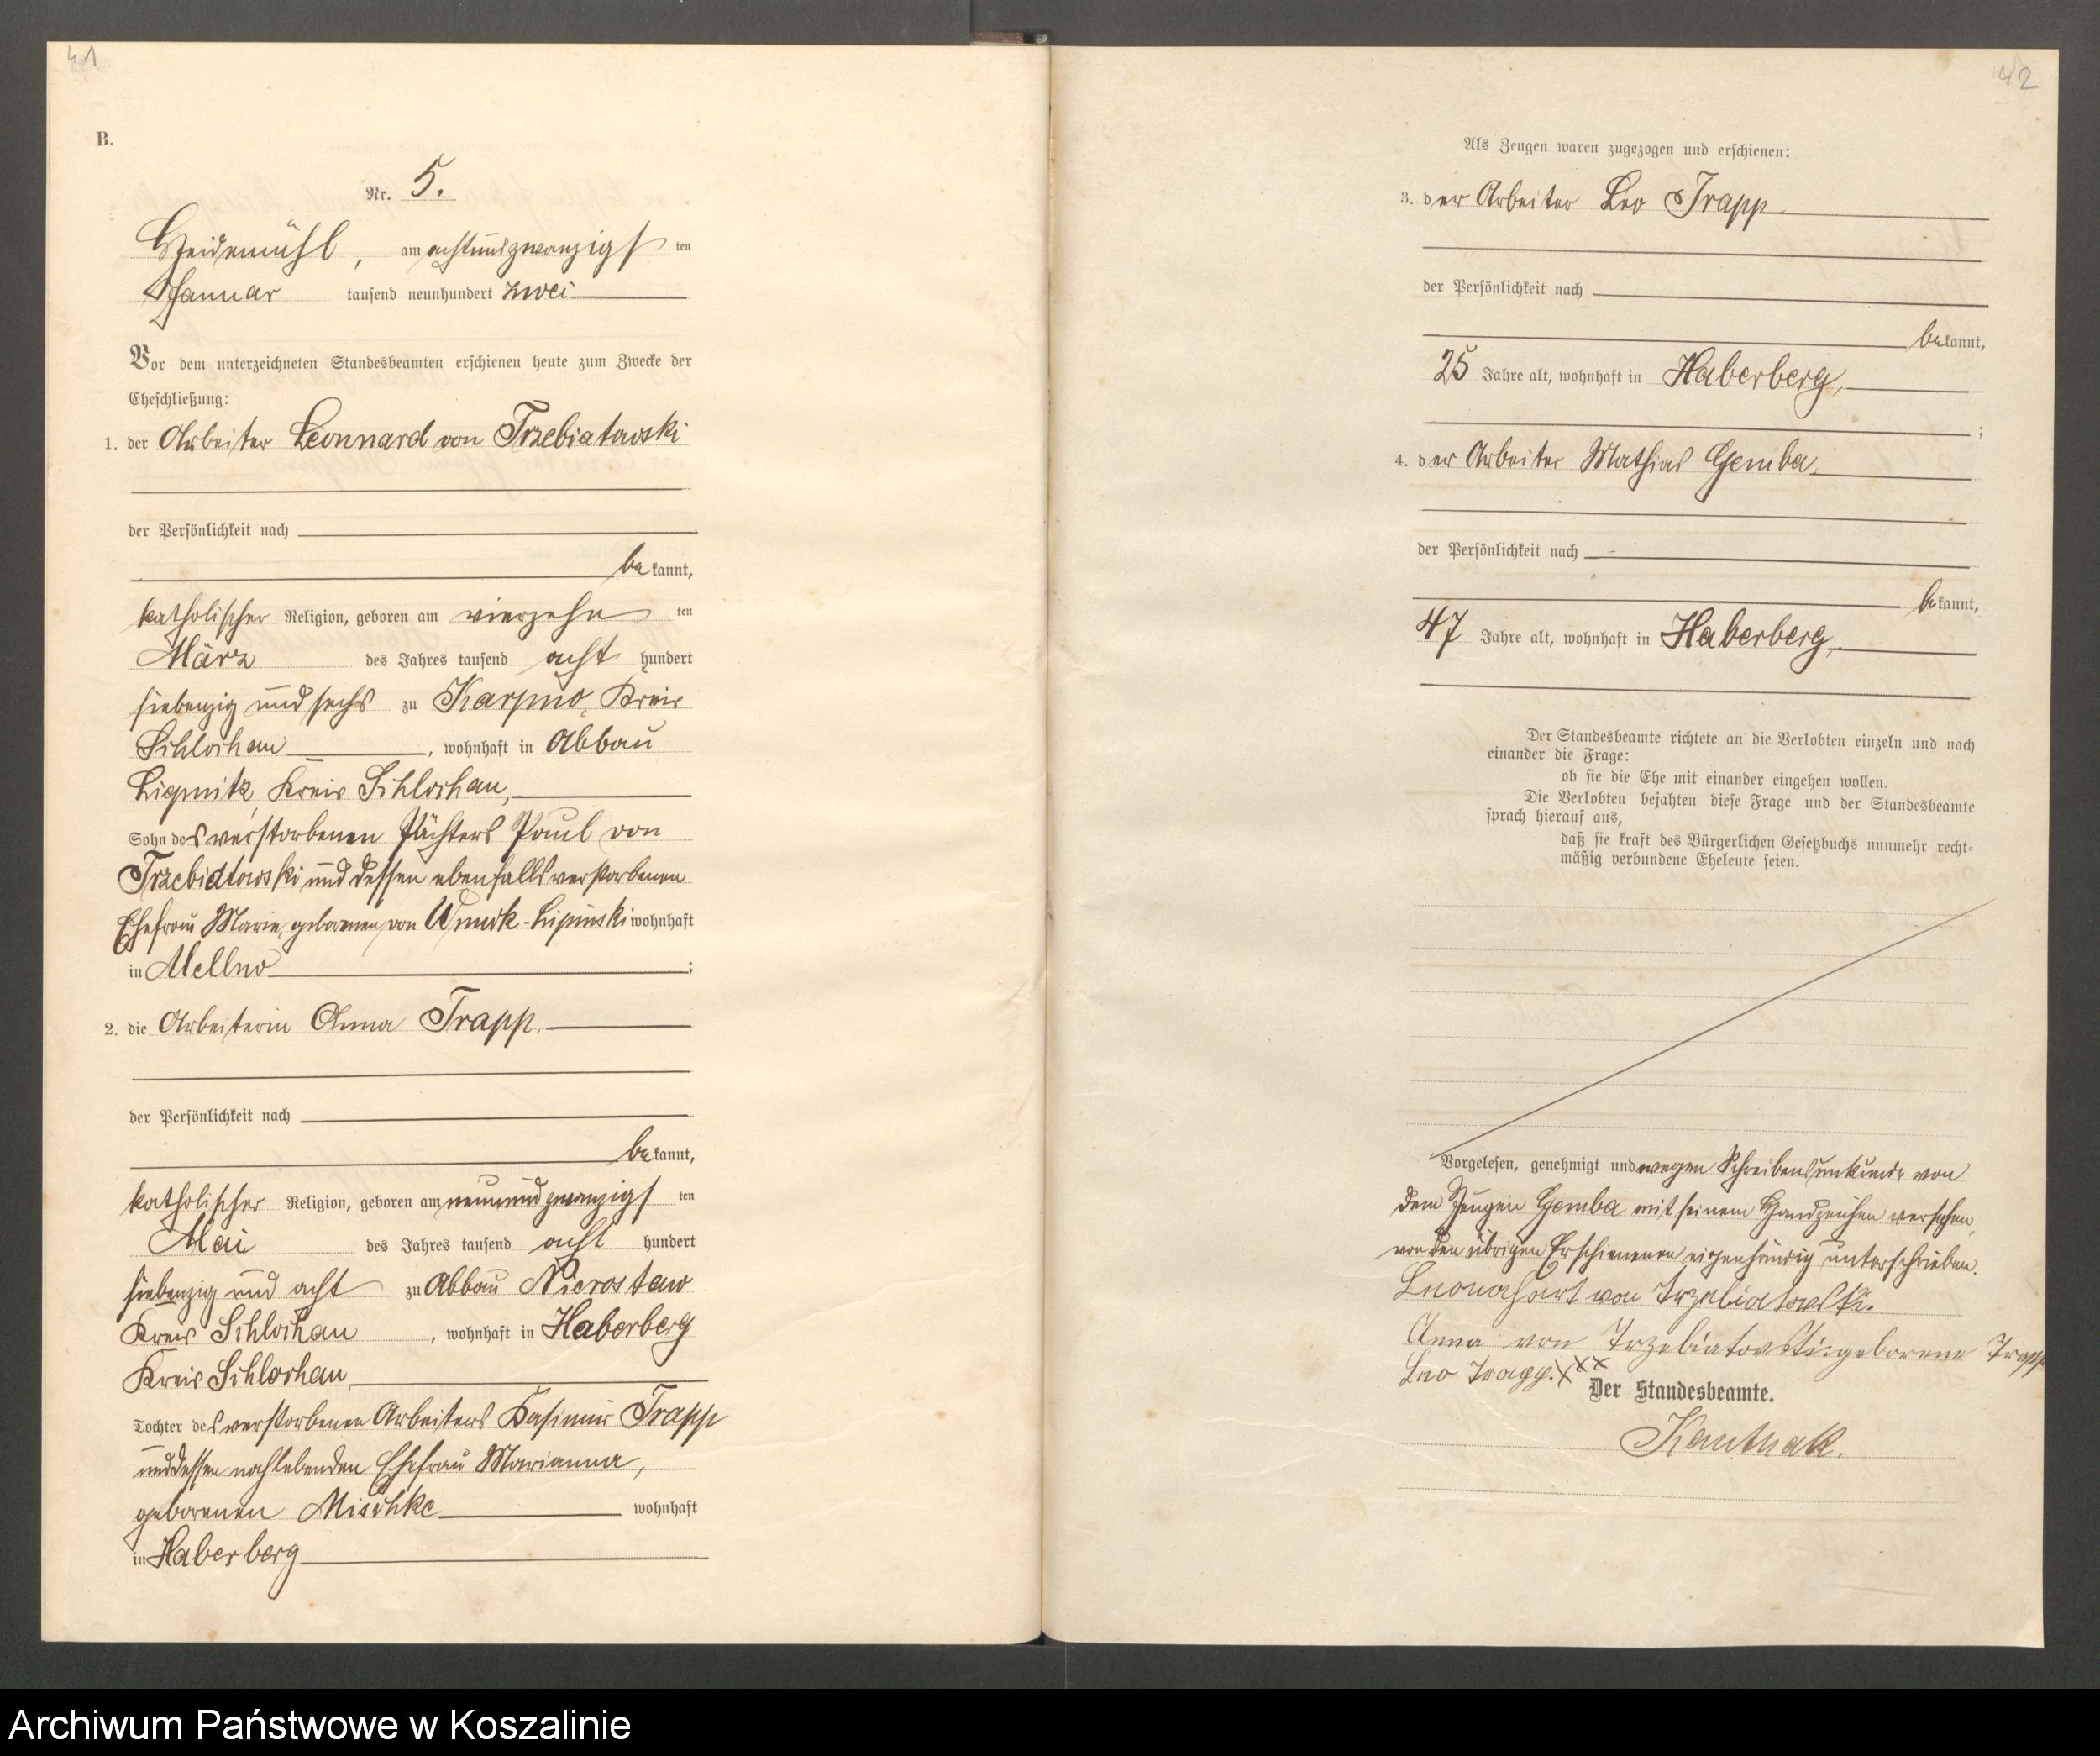 41
B.
Nr. 5.
Heidemühl, am achtundzwanzigsten
Januar tausend neunhundert zwei
Vor dem unterzeichneten Standesbeamten erschienen heute zum Zwecke der
Eheschließung:
1. der Arbeiter Leonnard von Trzebiatowski
der Persönlichkeit nach
bekannt,
katholischer Religion, geboren am vierzehnten
März des Jahres tausend acht hundert
siebenzig und sechs zu Karpno, Kreis
Schlochau, wohnhaft in Abbau
Liepnitz, Kreis Schlochau,
Sohn des verstorbenen Pächters Paul von
Trzebiatowski und dessen ebenfalls verstorbenen
Ehefrau Marie, geborenen von Wnuck-Lipinski wohnhaft
in Mellno;
2. die Arbeiterin Anna Trapp.
der Persönlichkeit nach
bekannt,
katholischer Religion, geboren am neunundzwanzigsten
Mai des Jahres tausend acht hundert
siebenzig und acht zu Abbau Nierostaw
Kreis Schlochau, wohnhaft in Haberberg
Kreis Schlochau,
Tochter des verstorbenen Arbeiters Kasimir Trapp
und dessen nachlebenden Ehefrau Marianna,
geborenen Mischke wohnhaft
in Haberberg
42
Als Zeugen waren zugezogen und erschienen:
3. der Arbeiter Leo Trapp
der Persönlichkeit nach
bekannt,
25 Jahre alt, wohnhaft in Haberberg,
;
4. der Arbeiter Mathias Gemba,
der Persönlichkeit nach
bekannt,
47 Jahre alt, wohnhaft in Haberberg,
Der Standesbeamte richtete an die Verlobten einzeln und nach
einander die Frage:
ob sie die Ehe mit einander eingehen wollen.
Die Verlobten bejahten diese Frage und der Standesbeamte
sprach hierauf aus,
daß sie kraft des Bürgerlichen Gesetzbuchs nunmehr recht-
mäßig verbundene Eheleute seien.
Vorgelesen, genehmigt und wegen Schreibensunkunde von
dem Zeugen Gemba mit seinem Handzeichen versehen,
von den übrigen Erschienenen eigenhändig unterschrieben.
Leonahart von Trzebiatowski.
Anna von Trzebiatowski geborene Trapp
Leo Trapp. XXX
Der Standesbeamte.
Kauthak.
Archiwum Państwowe w Koszalinie